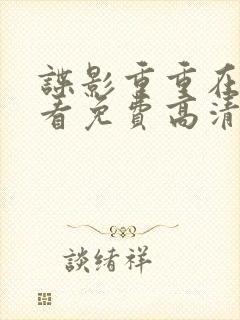 諜影重重在
看免費高清
談绪祥